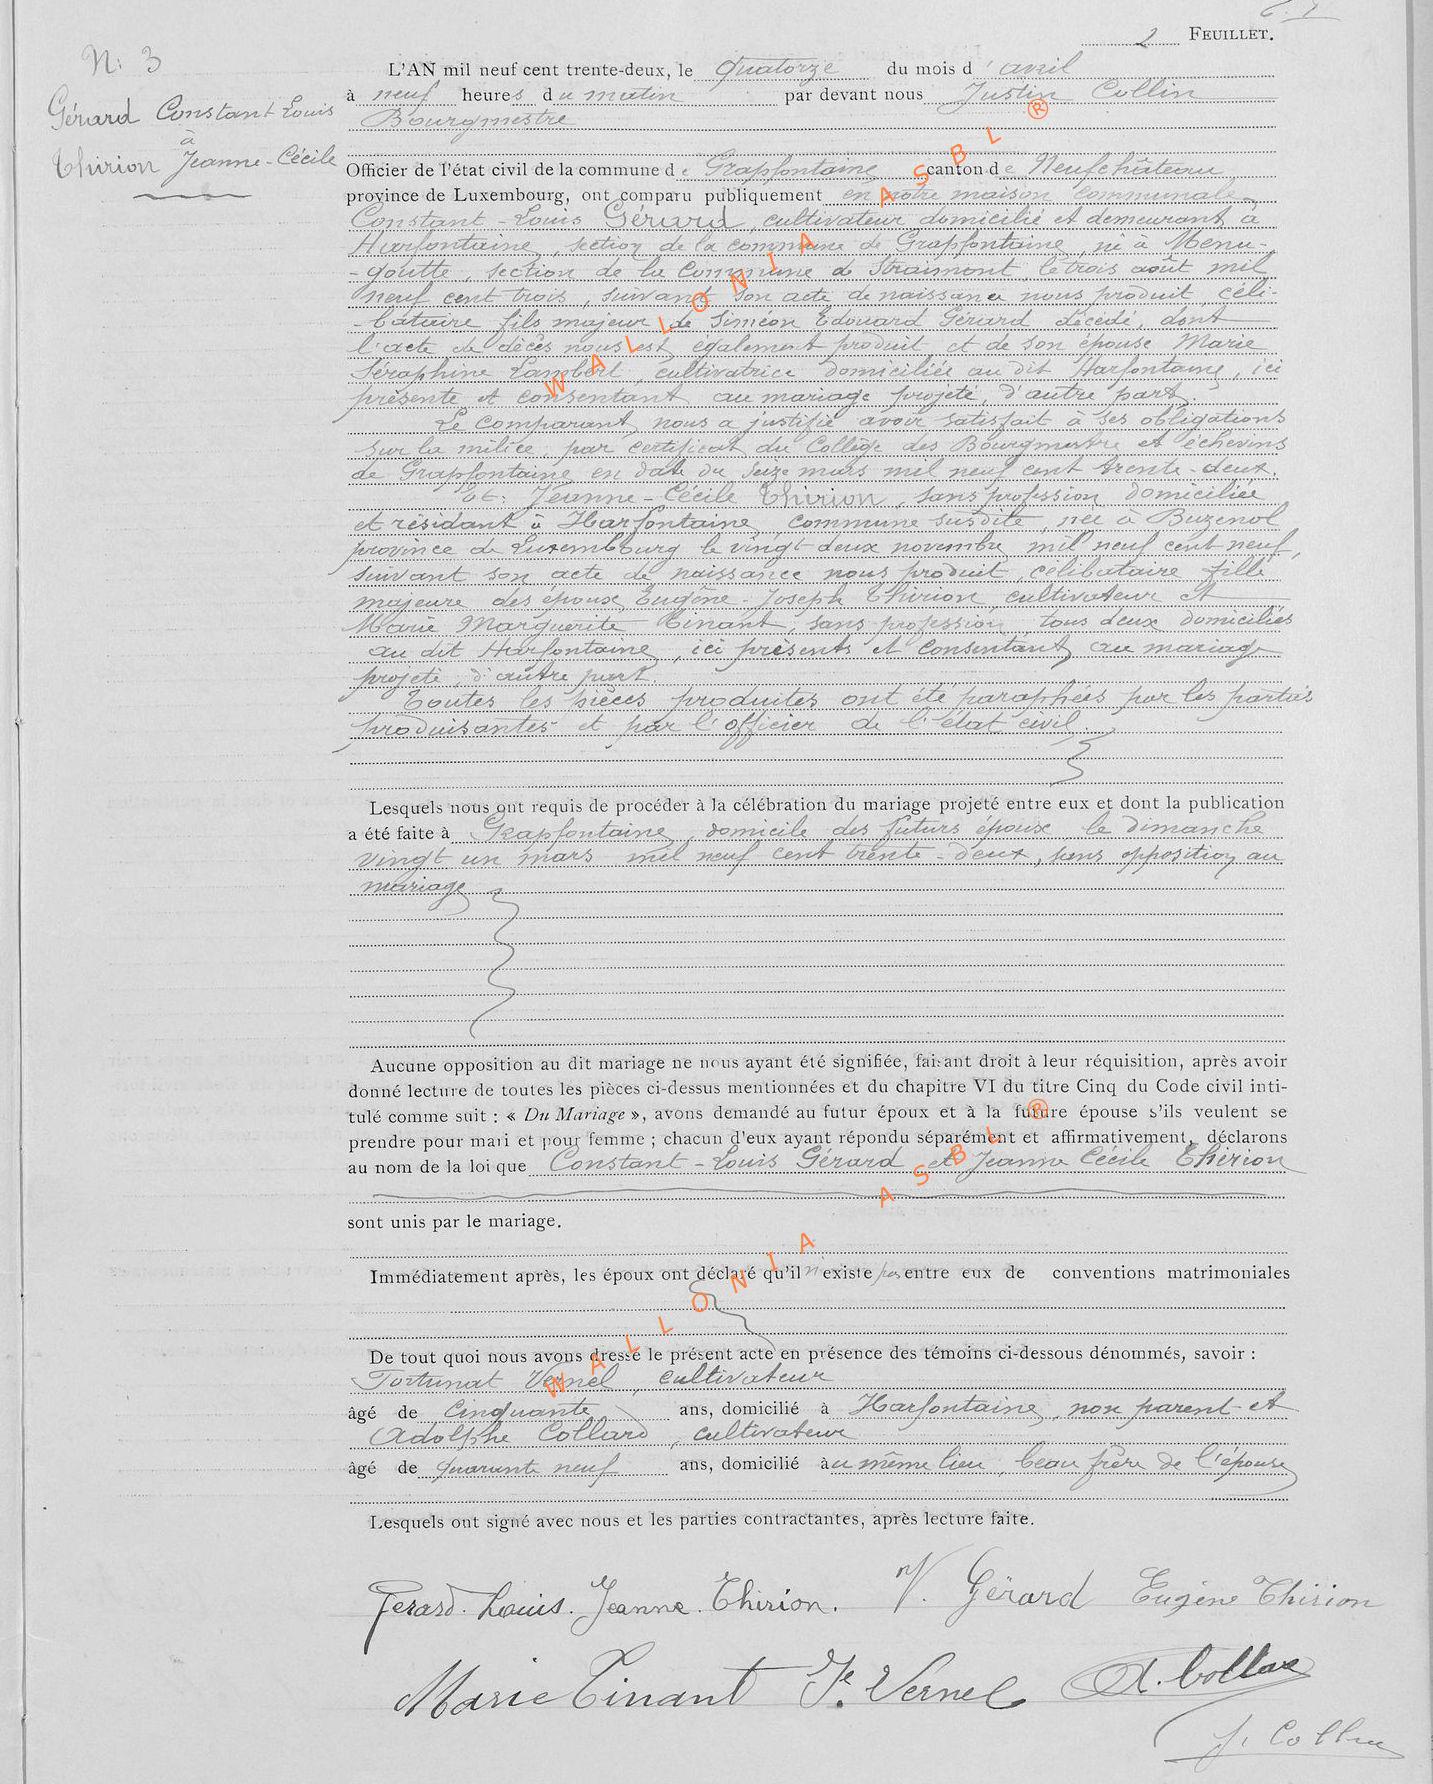 2 FEUILLET.
N: 3
Gérard Constant Louis
à
Thirion Jeanne-Cécile
L'AN mil neuf cent trente-deux, le quatorze du mois d'avril
à neuf heures du matin par devant nous Justin Collin
Bourgmestre
Officier de l'état civil de la commune de Grapfontaine canton de Neufchâteau
province de Luxembourg, ont comparu publiquement en notre maison communale
Constant-Louis Gérard, cultivateur domicilié et demeurant à
Harfontaine, section de la commune de Grapfontaine, né à Menu-
-goutte, section de la Commune de Straimont, le trois août mil
neuf cent trois, suivant son acte de naissance nous produit, céli-
-bataire fils majeur de Siméon Edouard Gérard décédé, dont
l'acte de décès nous est également produit et de son épouse Marie
Séraphine Lambert, cultivatrice domiciliée au dit Harfontaine, ici
présente et consentant au mariage projeté, d'autre part.
Le comparant nous a justifié avoir satisfait à ses obligations
sur la milice, par certificat du Collège des Bourgmestre et échevins
de Grapfontaine en date du seize mars mil neuf cent trente-deux.
Et: Jeanne-Cécile Thirion, sans profession domiciliée
et résidant à Harfontaine, commune susdite, née à Buzenol
province de Luxembourg le vingt-deux novembre mil neuf cent neuf,
suivant son acte de naissance nous produit, célibataire fille
majeure des époux Eugène-Joseph Thirion cultivateur et
Marie Marguerite Tinant, sans profession tous deux domiciliés
au dit Harfontaine, ici présents et consentant au mariage
projeté, d'autre part.
Toutes les pièces produites ont été paraphées par les parties
produisantes et par l'officier de l'état civil
Lesquels nous ont requis de procéder à la célébration du mariage projeté entre eux et dont la publication
a été faite à Grapfontaine, domicile des futurs époux le dimanche
vingt un mars mil neuf cent trente-deux, sans opposition au
mariage
Aucune opposition au dit mariage ne nous ayant été signifiée, faisant droit à leur réquisition, après avoir
donné lecture de toutes les pièces ci-dessus mentionnées et du chapitre VI du titre Cinq du Code civil inti-
tulé comme suit : « Du Mariage », avons demandé au futur époux et à la future épouse s'ils veulent se
prendre pour mari et pour femme ; chacun d'eux ayant répondu séparément et affirmativement, déclarons
au nom de la loi que Constant-Louis Gérard et Jeanne Cécile Thirion
sont unis par le mariage.
Immédiatement après, les époux ont déclaré qu'il n'existe pas entre eux de conventions matrimoniales
De tout quoi nous avons dressé le présent acte en présence des témoins ci-dessous dénommés, savoir :
Fortunat Vernel, cultivateur
âgé de cinquante ans, domicilié à Harfontaine, non parent et
Adolphe Collard, cultivateur
âgé de quarante neuf ans, domicilié au même lieu, beau frère de l'épouse
Lesquels ont signé avec nous et les parties contractantes, après lecture faite.
Gerard. Louis. Jeanne. Thirion. V. Gérard Eugène Thirion
Marie Tinant Fe. Vernel A. Collard
J. Collin
WALLONIA ASBL ®
WALLONIA ASBL ®